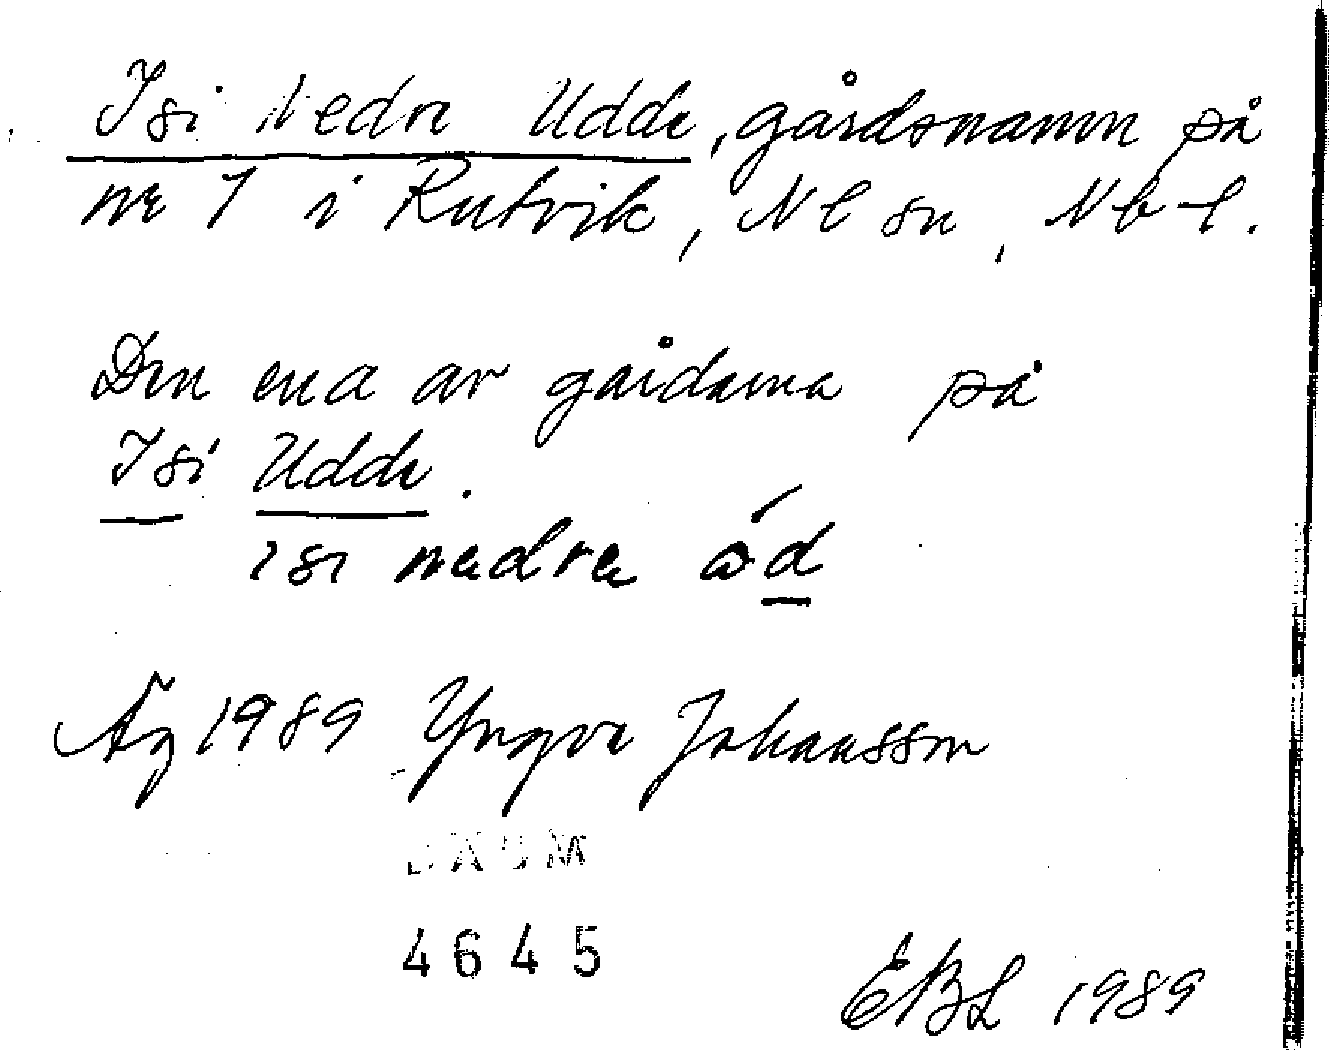 Isi Nedre Udde, gårdsnamn på
nr 7 i Rutvik, Nl sn, Nb l.
Den ena av gårdarna på
Isi Udde.
isi nedre ód
Äg 1989 Yngve Johansson
DAUM
4645
EBL 1989